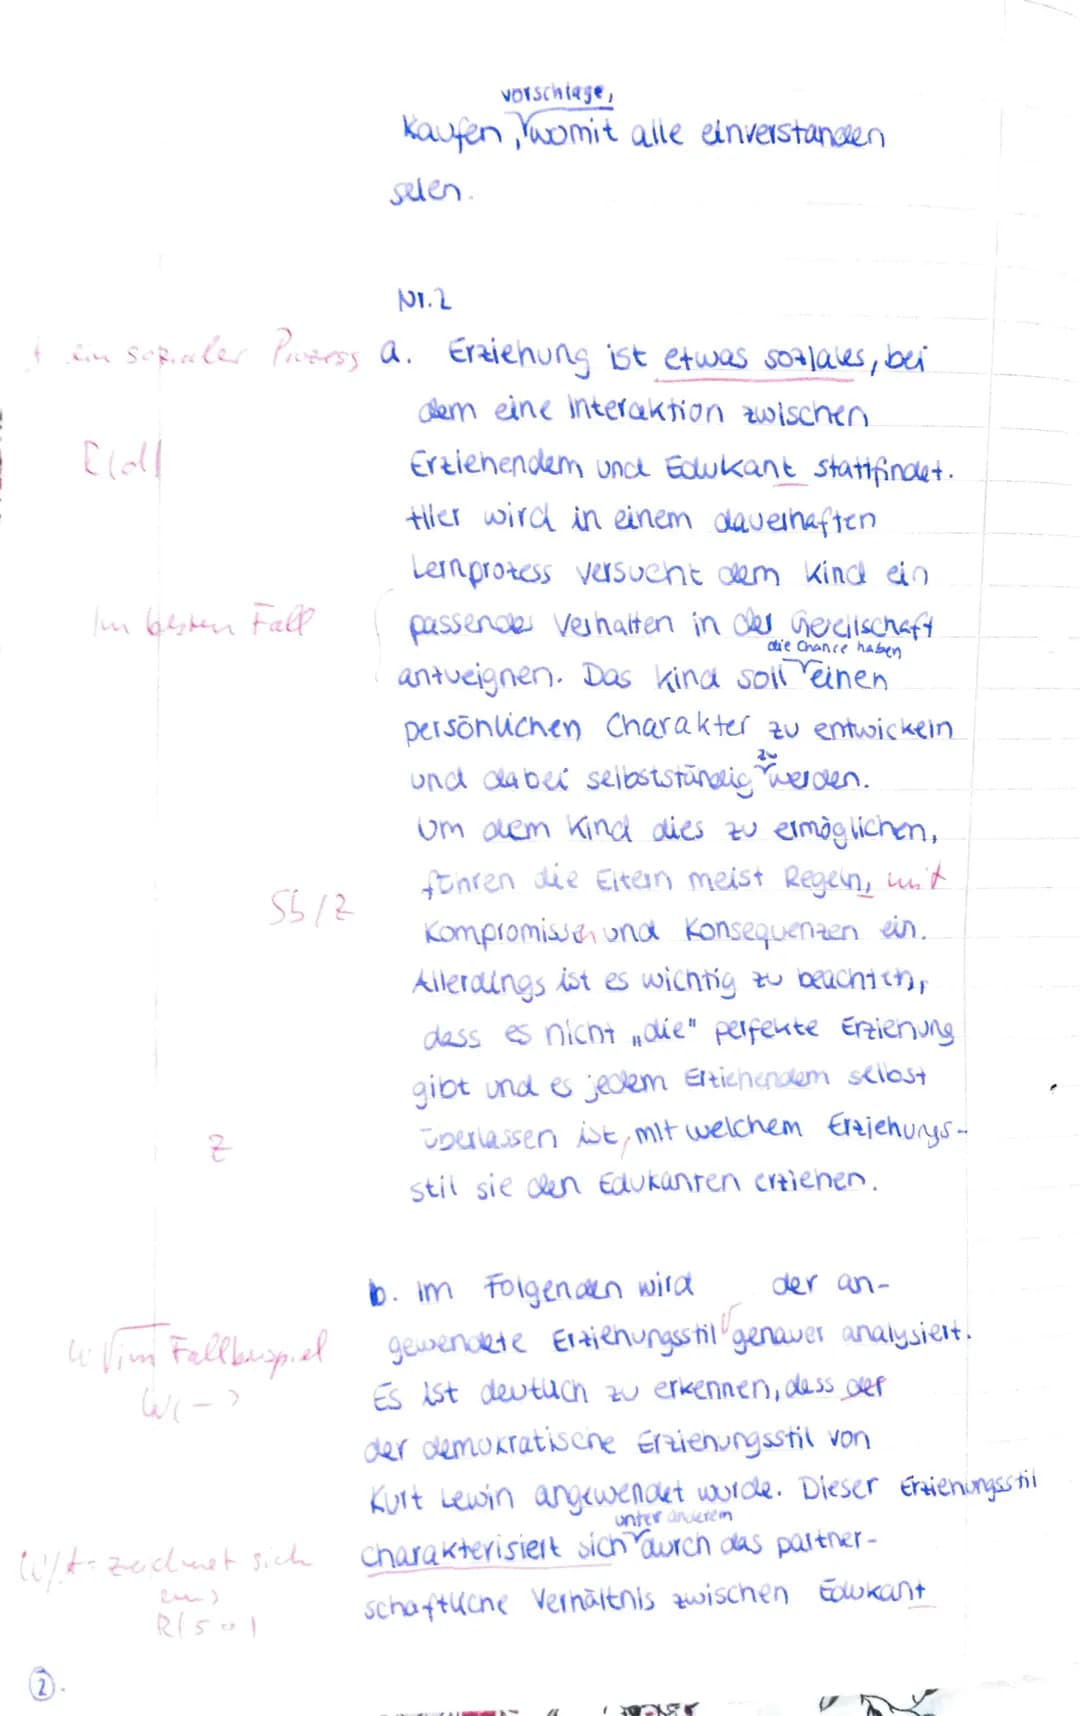 vorschlage,
Kaufen, womit alle einverstanden
seien.
Nr. 2
ein sozialer Prozess
a. Erziehung ist etwas soziales, bei
dem eine Interaktion zwischen
Erziehendem und Edukant stattfindet.
Hier wird in einem dauerhaften
Lernprozess versucht dem Kind ein
Im besten Fall
passendes Verhalten in der Gesellschaft
die Chance haben
anzueignen. Das Kind soll einen
persönlichen Charakter zu entwickeln
zu
und dabei selbstständig werden.
Um dem Kind dies zu ermöglichen,
führen die Eltern meist Regeln, mit
Sb/Z
Kompromissen und Konsequenzen ein.
Allerdings ist es wichtig zu beachten,
dass es nicht „die" perfekte Erziehung
gibt und es jedem Erziehendem selbst
Z
überlassen ist, mit welchem Erziehungs-
stil sie den Edukanten erziehen.
b. Im Folgenden wird der an-
W im Fallbeispiel
gewendete Erziehungsstil genauer analysiert.
W(-)
Es ist deutlich zu erkennen, dass der
der demokratische Erziehungsstil von
Kurt Lewin angewendet wurde. Dieser Erziehungsstil
unter anderem
zeichnet sich
charakterisiert sich durch das partner-
schaftliche Verhältnis zwischen Edukant
2.